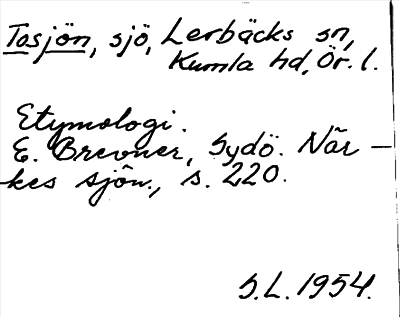 Tosjön, sjö, Lerbäcks sn,
Kumla hd, Ör. l.
Etymologi.
E. Brevner, Sydö. När-
kes sjön., s. 220.
S.L. 1954.